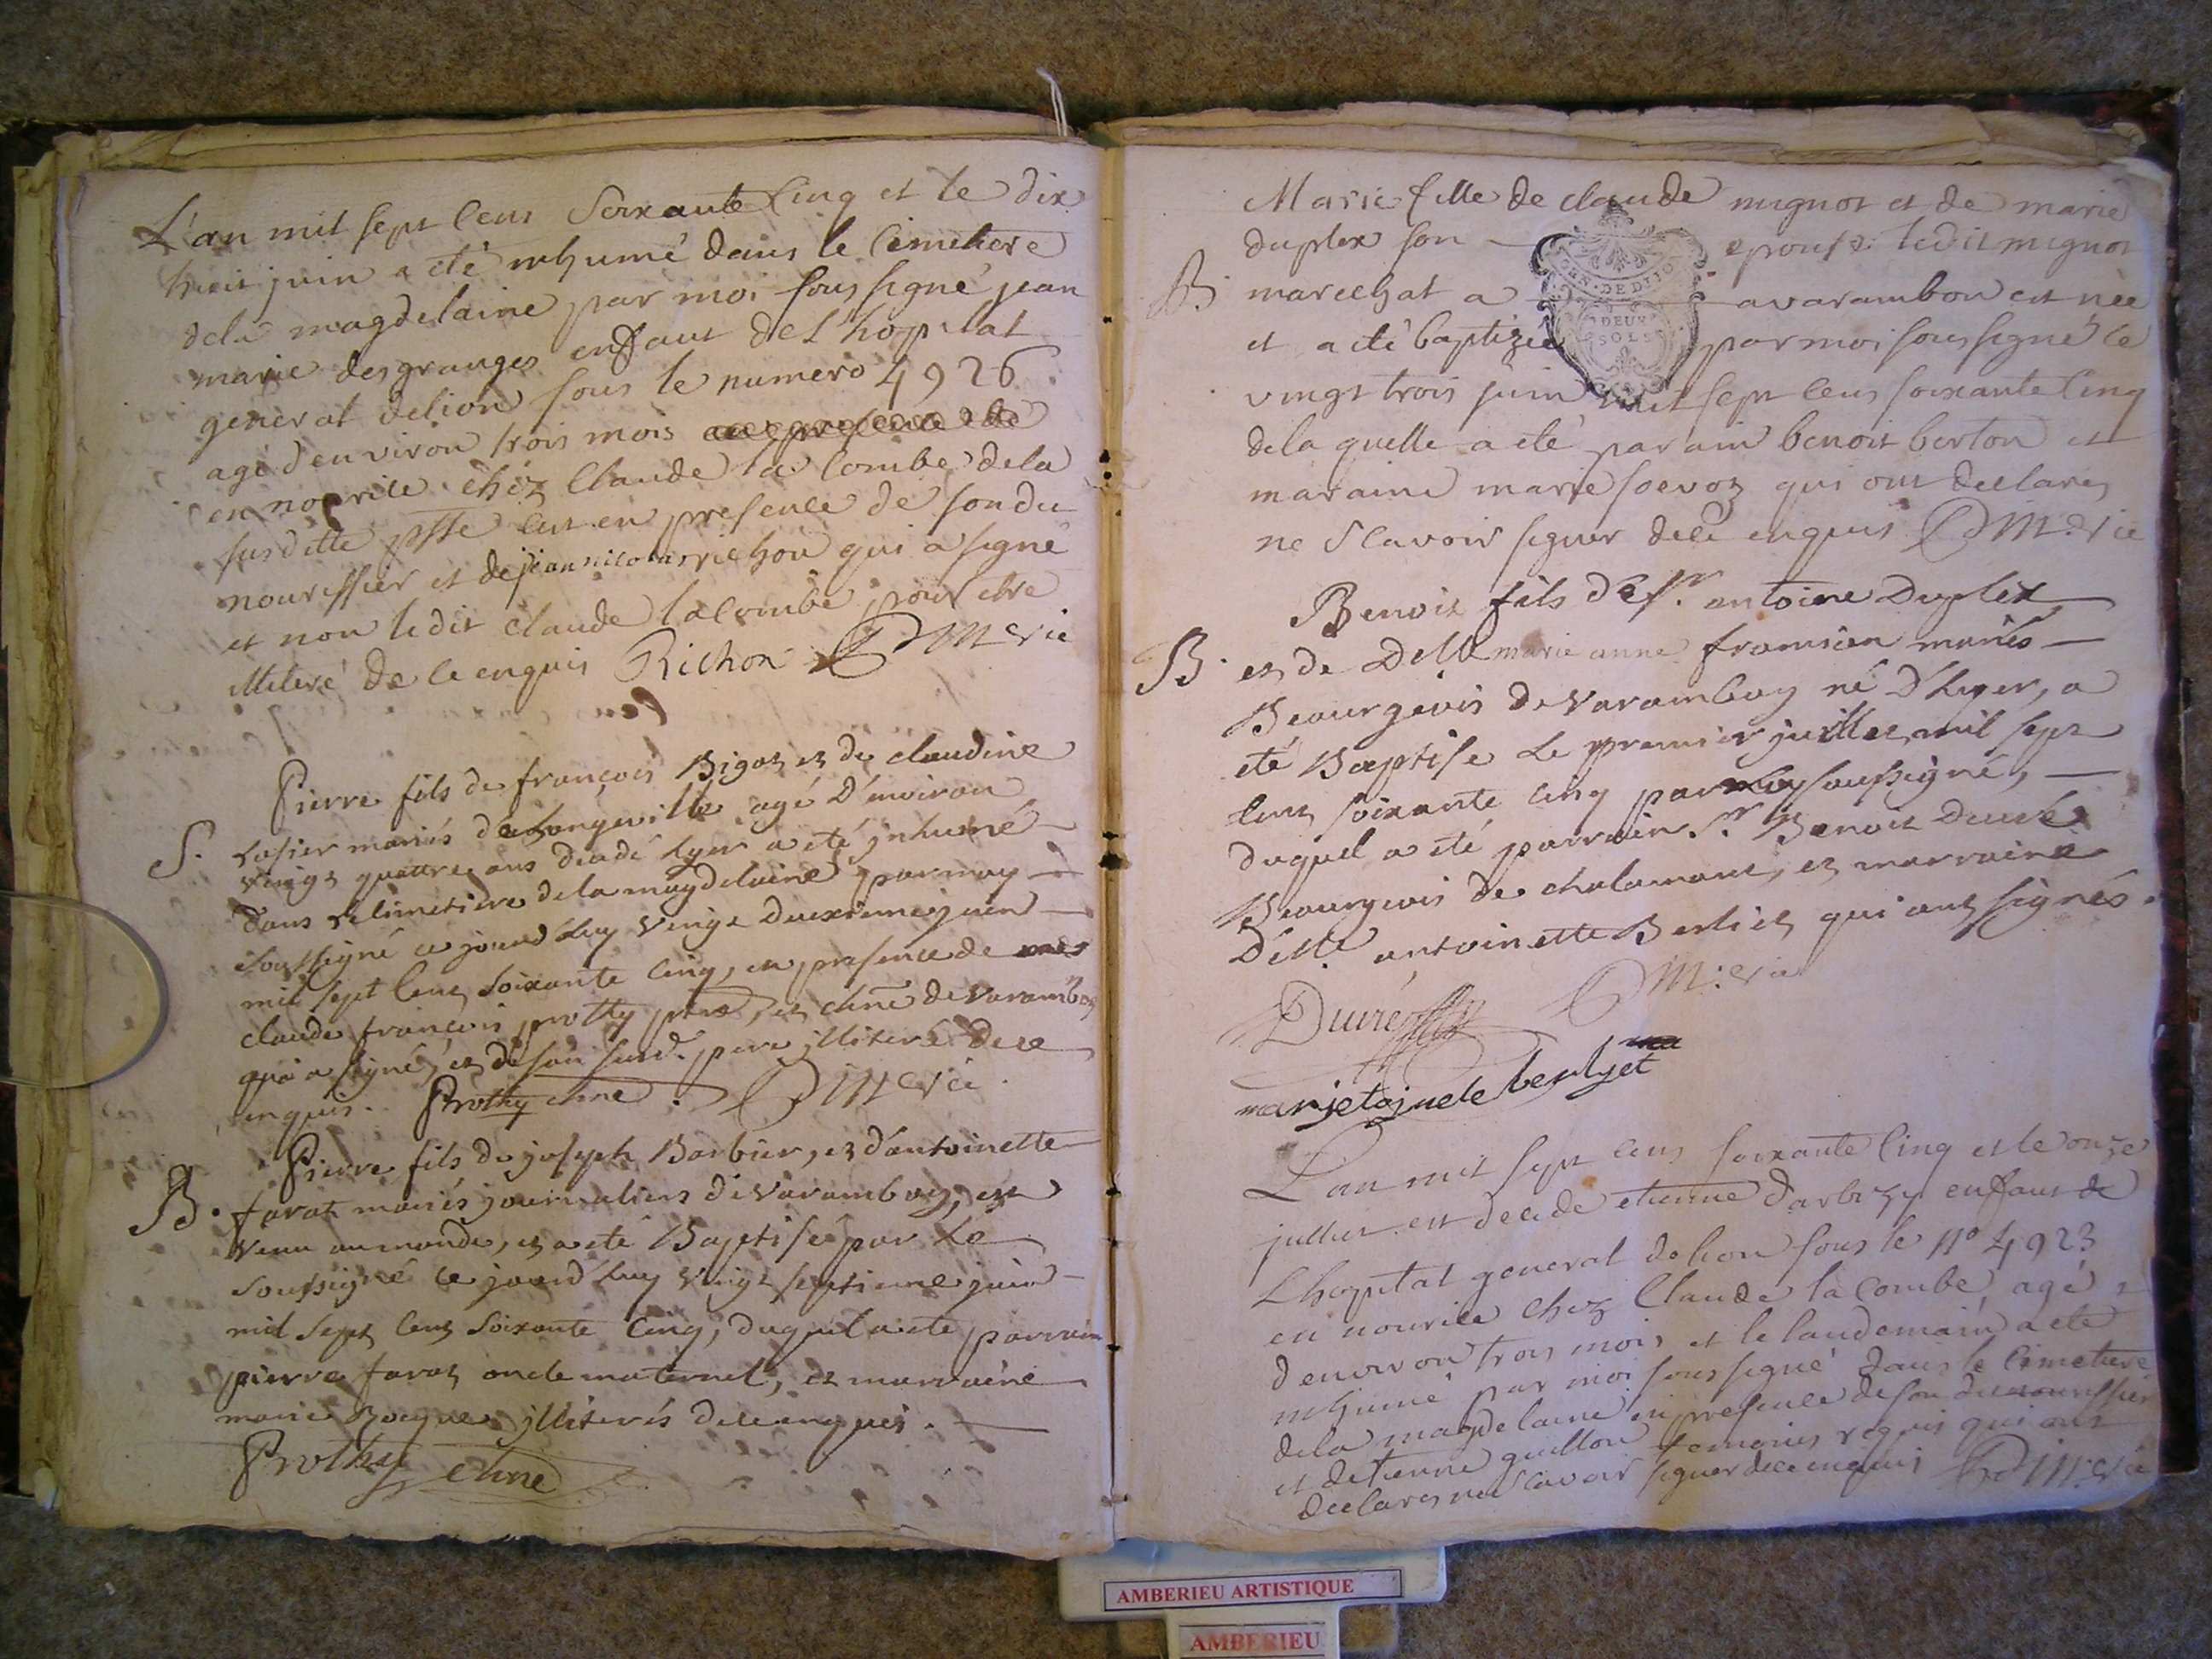 L'an mil sept cens soixante cinq et le dix
huit juin a eté inhumé dans le cimetiere
dela magdelaine par moi sous signé jean
marie desgranges enfant de L'hopital
general delion sous le numero 4926
agé d'environ trois mois
en nourice chéz Claude la Combe dela
susditte psse cest en presence de son du
nourissier et de jean nicolas richon qui a signé
et non ledit claude lacombe pour etre
illiteré de ce enquis Richon Merie
Pierre fils de françois Bigot et de claudine
S.
rosier mariés de Longeville agé D'environ
vingt quattre ans décédé hyer a eté jnhumé
dans le cimetiere de la magdelaine par moy
soussigné ce jourd'huy vingt deuxieme juin
mil sept cens soixante cinq, en presence de
claude françois prothy pretre, et chne de Varambon
qui a signé, et de son susd. pere jlliteré de ce
enquis. Prothy chne. Merie
Pierre fils de joseph Barbier, et d'antoinette
B.
farat mariés journaliers de Varambon, est
venu au monde, et a eté Baptisé par Le
soussigné ce jourd'huy vingt septieme juin
mil sept cens soixante cinq, duquel a eté parrain
pierre farat oncle maternel, et marraine
marie jlliterés de ce enquis.
Prothy chne
Marie fille de claude mignot et de marie
duplex son epouse ledit mignot
B
marechal a avarambon est née
GEN. DE DIJON
DEUX
SOLS
et a eté baptizée par moi sous signé le
vingt trois juin mil sept cens soixante cinq
dela quelle a eté parain benoit berton et
maraine marie soevoz qui ont declarés
ne sçavoir signer de ce enquis Merie
Benoit fils de sr. antoine Duplex
B.
et de Delle marie anne mariés
Beourgeois de Varambon né D'hyer, a
eté Baptise Le premier juillet mil sept
cens soixante cinq par moy soussigné,
duquel a eté parrain sr. Benoit
Beourgeois de chalamont, et marraine
Delle. antoinette Berliet qui ont signés.
M:erie
marjetojnete berlyet
L'an mil sept cens soixante cinq et le onze
juillet est decede etienne darbizy enfant de
L'hopital general de lion sous le no 4923
en nourice chez Claude la Combe agé
d'environ trois mois et le landemain a eté
inhumé par moi sous signé dans le cimetiere
dela magdelaine en presence de son du nourissier
et detienne guillon temoins requis qui ont
declarés ne sçavoir signer de ce enquis M:erie
AMBERIEU ARTISTIQUE
AMBERIEU